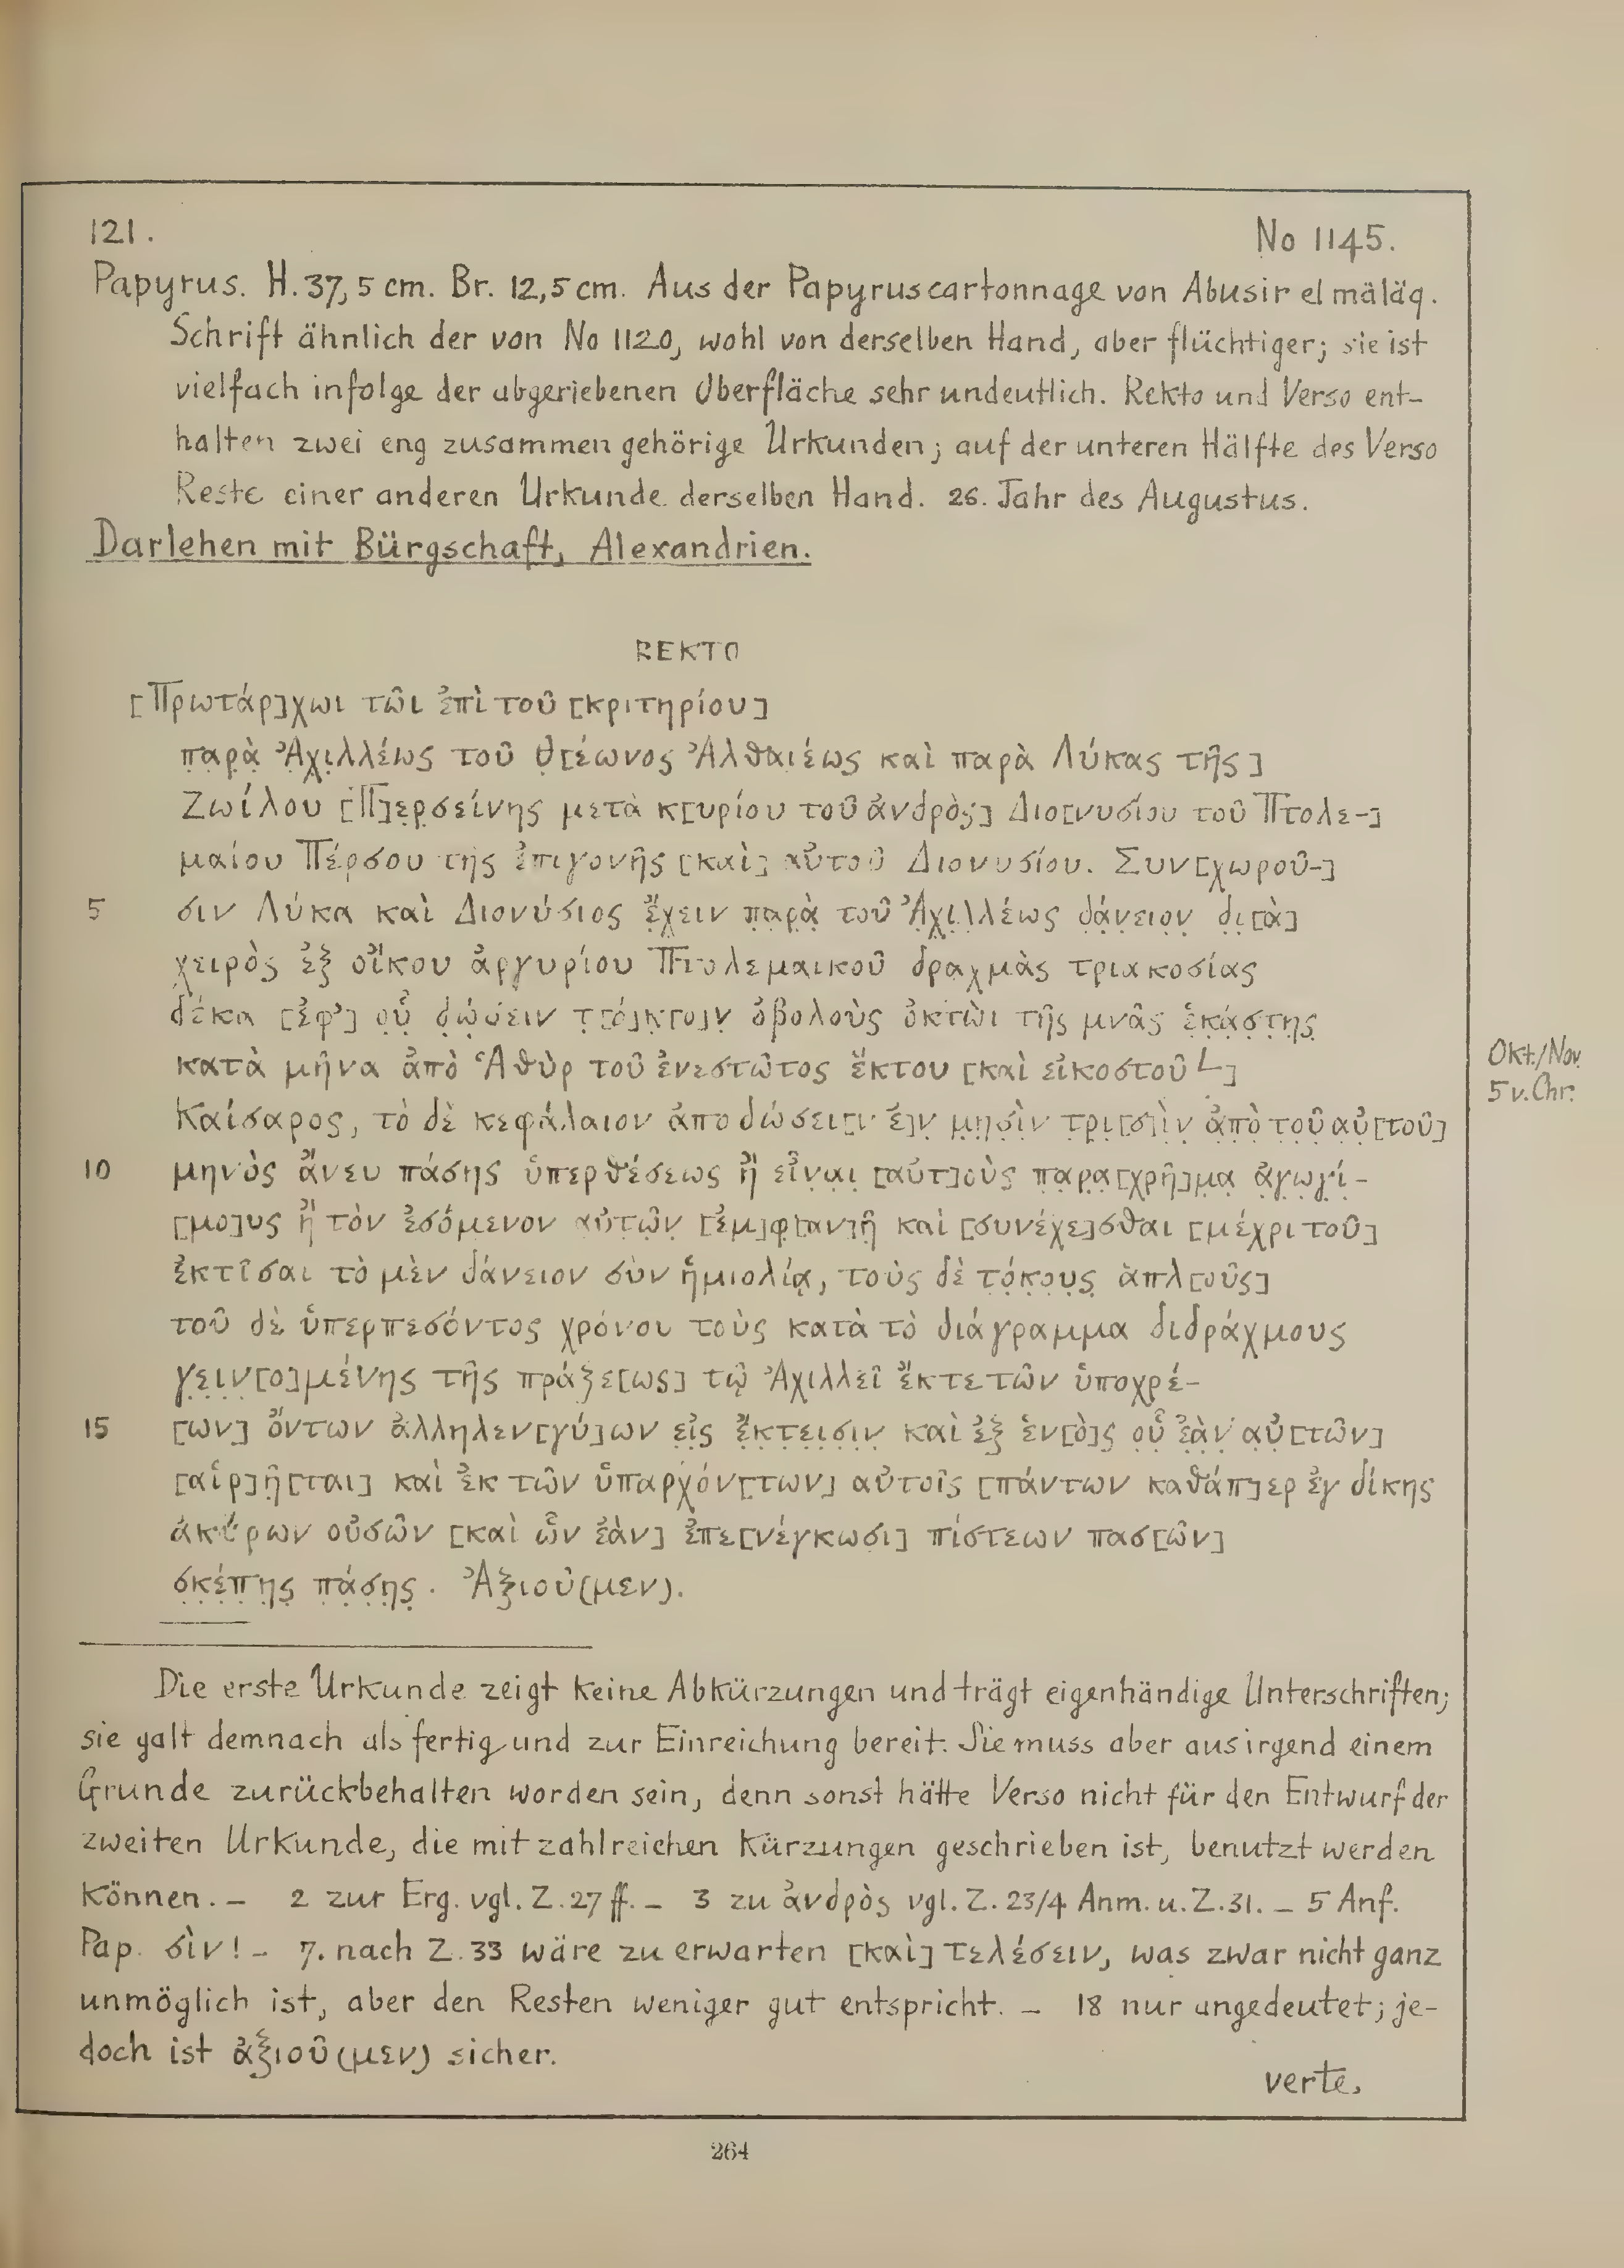 121. No 1145.
Papyrus. H. 37,5 cm. Br. 12,5 cm. Aus der Papyruscartonnage von Abusir el mäläq.
Schrift ähnlich der von No 1120, wohl von derselben Hand, aber flüchtiger; sie ist
vielfach infolge der abgeriebenen Oberfläche sehr undeutlich. Rekto und Verso ent-
halten zwei eng zusammengehörige Urkunden; auf der unteren Hälfte des Verso
Reste einer anderen Urkunde derselben Hand. 26. Jahr des Augustus.
Darlehen mit Bürgschaft, Alexandrien.
REKTO
[Πρωτάρ]χωι τῶι ἐπὶ τοῦ [κριτηρίου]
π̣α̣ρ̣ὰ̣ Ἀ̣χ̣ι̣λλέως τοῦ Θ̣[έωνος Ἀλθαιέως καὶ παρὰ Λύκας τῆς]
Ζωίλου [Π]ε̣ρ̣σείνης μετὰ κ[υρίου τοῦ ἀνδρὸς] Διο[νυσίου τοῦ Πτολε-]
μαίου Πέρσου τῆς ἐπιγονῆς [καὶ] αὐτοῦ Διονυσίου. Συν[χωροῦ-]
5 σιν Λύκα καὶ Διονύσιος ἔ̣χ̣ειν π̣α̣ρ̣ὰ̣ τοῦ Ἀ̣χ̣ι̣λ̣λέως δ̣ά̣ν̣ειο̣ν̣ δ̣ι̣[ὰ]
χειρὸς ἐξ οἴκου ἀργυρίου Πτολεμαικοῦ δραχμὰς τριακοσίας
δέκα [ἐφ’] ο̣ὗ̣ δ̣ώ̣σ̣ειν τ̣[ό]κ̣[ο]ν̣ ὀβολοὺς ὀκτὼι τῆς μνᾶς ἑ̣κ̣ά̣σ̣τ̣η̣ς̣
κατὰ μῆνα ἀπὸ Ἁθὺρ τοῦ ἐνεστῶτος ἕκτου [καὶ εἰκοστοῦ L]
Καίσαρος, τὸ δὲ κεφάλαιον ἀποδώσει[ν ἔ]ν̣ μ̣η̣σ̣ὶ̣ν τ̣ρ̣ι̣[σ]ὶ̣ν̣ ἀ̣π̣ὸ̣ τ̣ο̣ῦ̣ α̣ὐ̣[τοῦ]
10 μηνὸς ἄνευ πάσης ὑπερθέσεως ἢ̣ εἶν̣α̣ι̣ [αὐτ]οὺς π̣α̣ρ̣α̣[χρῆ]μ̣α̣ ἀ̣γ̣ω̣γ̣ί̣-
[μο]υς ἢ τὸν ἐσόμενον αὐτῶ̣ν̣ [ἐμ]φ̣[αν]ῆ̣ καὶ [συνέχε]σθαι [μέχρι τοῦ]
ἐκτῖσαι τὸ μὲν δάνειον σὺν ἡμιολίᾳ, τοὺς δὲ τ̣ό̣κ̣ο̣υ̣ς̣ ἁπλ[οῦς]
τοῦ δὲ ὑπερπεσόντος χρόνου τοὺς κατὰ τὸ διάγραμμα διδράχμους
γ̣ε̣ι̣ν̣[ο]μένης τῆς πράξε[ως] τῷ Ἀχιλλεῖ ἔκτετῶν ὑποχρέ-
15 [ων] ὄντων ἀλληλεν[γύ]ων ε̣ἰ̣ς̣ ἔ̣κ̣τ̣ε̣ι̣σ̣ι̣ν̣ καὶ ἐξ ἑν[ὸ]ς ο̣ὗ̣ ἐ̣ὰ̣ν̣ α̣ὐ̣[τῶν]
[αἱρ]ῆ̣[ται] καὶ ἐκ τῶν ὑπαρχόν[των] αὐτοῖς [πάντων καθάπ]ερ ἐγ δίκης
ἀκύρων οὐσῶν [καὶ ὧν ἐὰν] ἐπε[νέγκωσι] πίστεων πασ[ῶν]
σ̣κ̣έ̣π̣η̣ς̣ π̣ά̣σ̣η̣ς̣. Ἀξιοῦ(μεν).
Okt./Nov.
5 v. Chr.
Die erste Urkunde zeigt keine Abkürzungen und trägt eigenhändige Unterschriften;
sie galt demnach als fertig und zur Einreichung bereit. Sie muss aber aus irgend einem
Grunde zurückbehalten worden sein, denn sonst hätte Verso nicht für den Entwurf der
zweiten Urkunde, die mit zahlreichen Kürzungen geschrieben ist, benutzt werden
können. – 2 zur Erg. vgl. Z. 27 ff. – 3 zu ἀνδρὸς vgl. Z. 23/4 Anm. u. Z. 31. – 5 Anf.
Pap. σὶν! – 7. nach Z. 33 wäre zu erwarten [καὶ] τελέσειν, was zwar nicht ganz
unmöglich ist, aber den Resten weniger gut entspricht. – 18 nur angedeutet; je-
doch ist ἀξιοῦ(μεν) sicher.
verte.
264